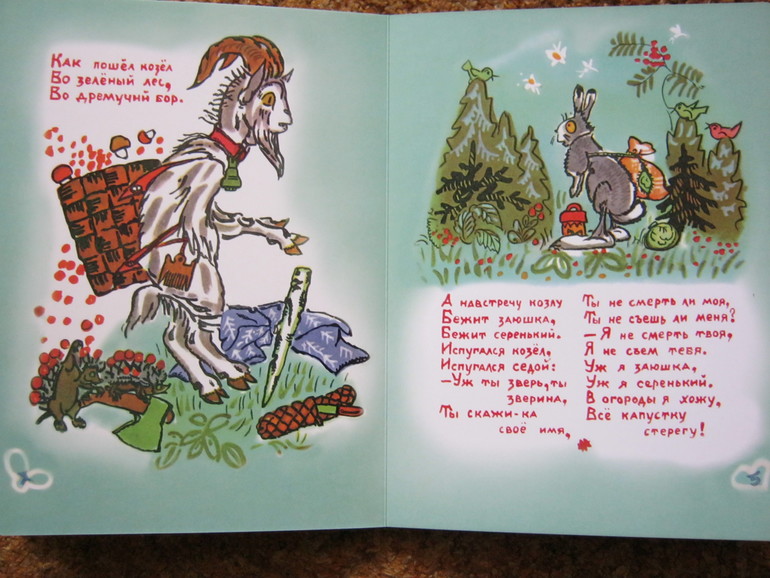 Как пошёл козёл
Во зелёный лес,
Во дремучий бор.
А навстречу козлу
Бежит заюшка,
Бежит серенький.
Испугался козёл,
Испугался седой:
—Уж ты зверь, ты
зверина,
Ты скажи-ка
своё имя,
Ты не смерть ли моя,
Ты не съешь ли меня?
—Я не смерть твоя,
Я не съем тебя.
Уж я заюшка,
Уж я серенький.
В огороды я хожу,
Всё капустку
стерегу!
5